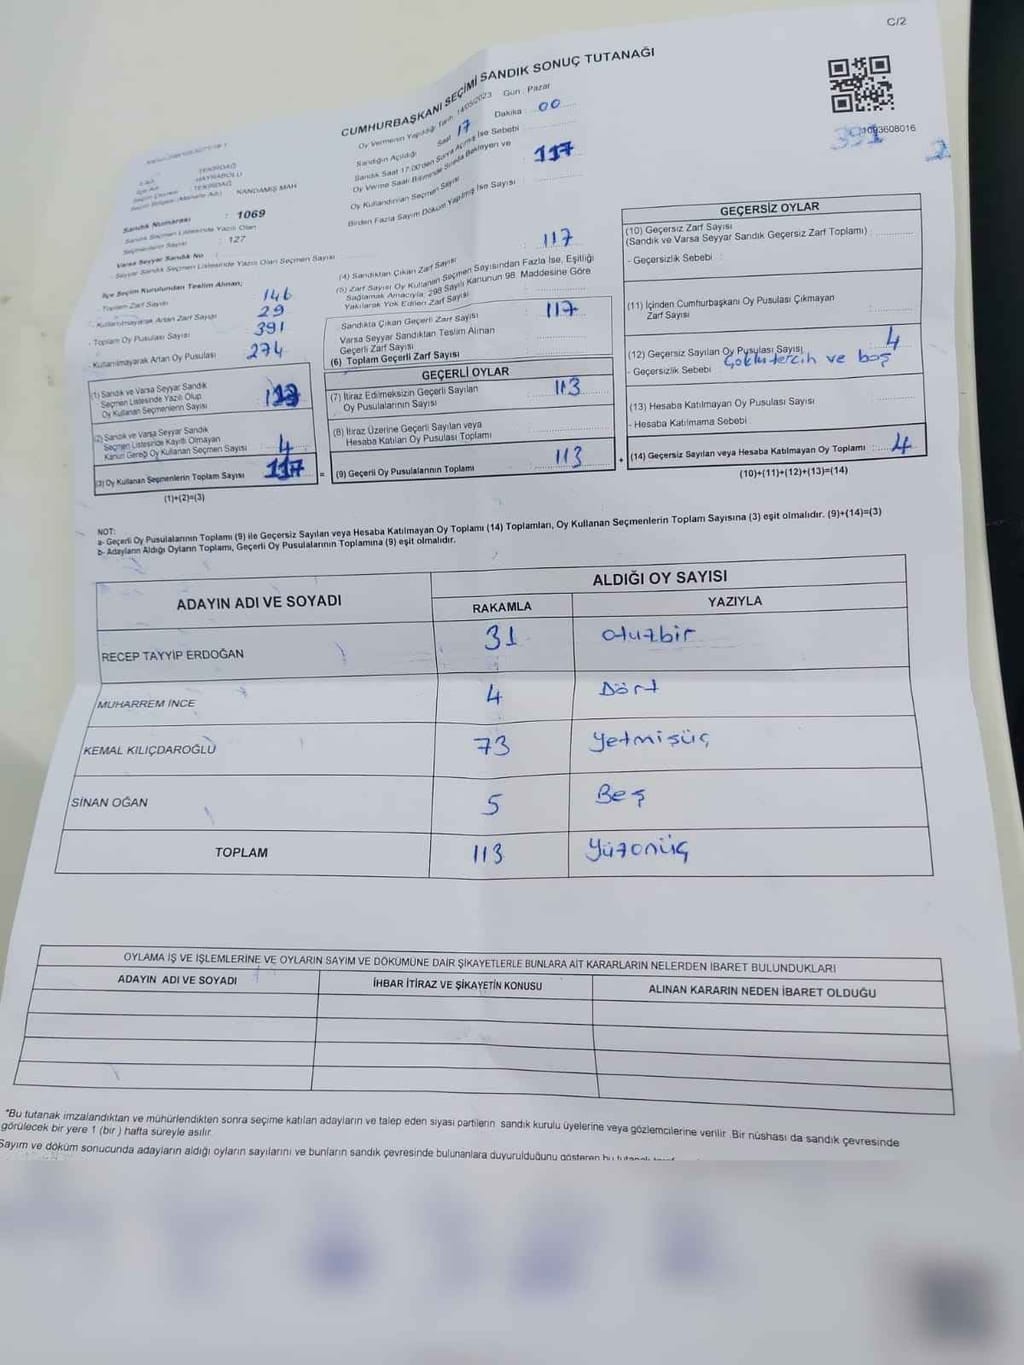 C/2
CUMHURBAŞKANI SEÇİMİ SANDIK SONUÇ TUTANAĞI
Oy Vermenin Yapıldığı Tarih 14/05/2023 Gün : Pazar
Sandığın Açıldığı Saat 17 Dakika 00
Sandık Saat 17:00'den Sonra Açılmış İse Sebebi
Oy Verme Saati Bitiminde Sırada Bekleyen ve
Oy Kullandırılan Seçmen Sayısı 117
Birden Fazla Sayım Döküm Yapılmış İse Sayısı
1093608016
391
2
İli TEKİRDAĞ
İlçe Adı HAYRABOLU
Seçim Çevresi : TEKİRDAĞ
Seçim Bölgesi (Mahalle Adı) KANDAMIŞ MAH
Sandık Numarası : 1069
Sandık Seçmen Listesinde Yazılı Olan
Seçmenlerin Sayısı : 127
Varsa Seyyar Sandık No
Seyyar Sandık Seçmen Listesinde Yazılı Olan Seçmen Sayısı
İlçe Seçim Kurulundan Teslim Alınan;
Toplam Zarf Sayısı 146
- Kullanılmayarak Artan Zarf Sayısı 29
- Toplam Oy Pusulası Sayısı 391
- Kullanılmayarak Artan Oy Pusulası 274
(1) Sandık ve Varsa Seyyar Sandık
Seçmen Listesinde Yazılı Olup
Oy Kullanan Seçmenlerin Sayısı
(2) Sandık ve Varsa Seyyar Sandık
Seçmen Listesinde Kayıtlı Olmayan
Kanun Gereği Oy Kullanan Seçmen Sayısı 4
(3) Oy Kullanan Seçmenlerin Toplam Sayısı 117 =
(1)+(2)=(3)
(4) Sandıktan Çıkan Zarf Sayısı 117
(5) Zarf Sayısı Oy Kullanan Seçmen Sayısından Fazla İse, Eşitliği
Sağlamak Amacıyla, 298 Sayılı Kanunun 98. Maddesine Göre
Yakılarak Yok Edilen Zarf Sayısı
Sandıkta Çıkan Geçerli Zarf Sayısı 117
Varsa Seyyar Sandıktan Teslim Alınan
Geçerli Zarf Sayısı
(6) Toplam Geçerli Zarf Sayısı
GEÇERLİ OYLAR
(7) İtiraz Edilmeksizin Geçerli Sayılan
Oy Pusulalarının Sayısı 113
(8) İtiraz Üzerine Geçerli Sayılan veya
Hesaba Katılan Oy Pusulası Toplamı
(9) Geçerli Oy Pusulalarının Toplamı 113 +
GEÇERSİZ OYLAR
(10) Geçersiz Zarf Sayısı
(Sandık ve Varsa Seyyar Sandık Geçersiz Zarf Toplamı)
- Geçersizlik Sebebi :
(11) İçinden Cumhurbaşkanı Oy Pusulası Çıkmayan
Zarf Sayısı
(12) Geçersiz Sayılan Oy Pusulası Sayısı 4
- Geçersizlik Sebebi Çoklu tercih ve boş
(13) Hesaba Katılmayan Oy Pusulası Sayısı
- Hesaba Katılmama Sebebi
(14) Geçersiz Sayılan veya Hesaba Katılmayan Oy Toplamı : 4
(10)+(11)+(12)+(13)=(14)
NOT:
a- Geçerli Oy Pusulalarının Toplamı (9) ile Geçersiz Sayılan veya Hesaba Katılmayan Oy Toplamı (14) Toplamları, Oy Kullanan Seçmenlerin Toplam Sayısına (3) eşit olmalıdır. (9)+(14)=(3)
b- Adayların Aldığı Oyların Toplamı, Geçerli Oy Pusulalarının Toplamına (9) eşit olmalıdır.
ADAYIN ADI VE SOYADI
ALDIĞI OY SAYISI
RAKAMLA YAZIYLA
RECEP TAYYİP ERDOĞAN 31 otuzbir
MUHARREM İNCE 4 Dört
KEMAL KILIÇDAROĞLU 73 Yetmişüç
SİNAN OĞAN 5 Beş
TOPLAM 113 Yüzonüç
OYLAMA İŞ VE İŞLEMLERİNE VE OYLARIN SAYIM VE DÖKÜMÜNE DAİR ŞİKAYETLERLE BUNLARA AİT KARARLARIN NELERDEN İBARET BULUNDUKLARI
ADAYIN ADI VE SOYADI İHBAR İTİRAZ VE ŞİKAYETİN KONUSU ALINAN KARARIN NEDEN İBARET OLDUĞU
*Bu tutanak imzalandıktan ve mühürlendikten sonra seçime katılan adayların ve talep eden siyasi partilerin sandık kurulu üyelerine veya gözlemcilerine verilir. Bir nüshası da sandık çevresinde
görülecek bir yere 1 (bir ) hafta süreyle asılır.
Sayım ve döküm sonucunda adayların aldığı oyların sayılarını ve bunların sandık çevresinde bulunanlara duyurulduğunu gösteren bu